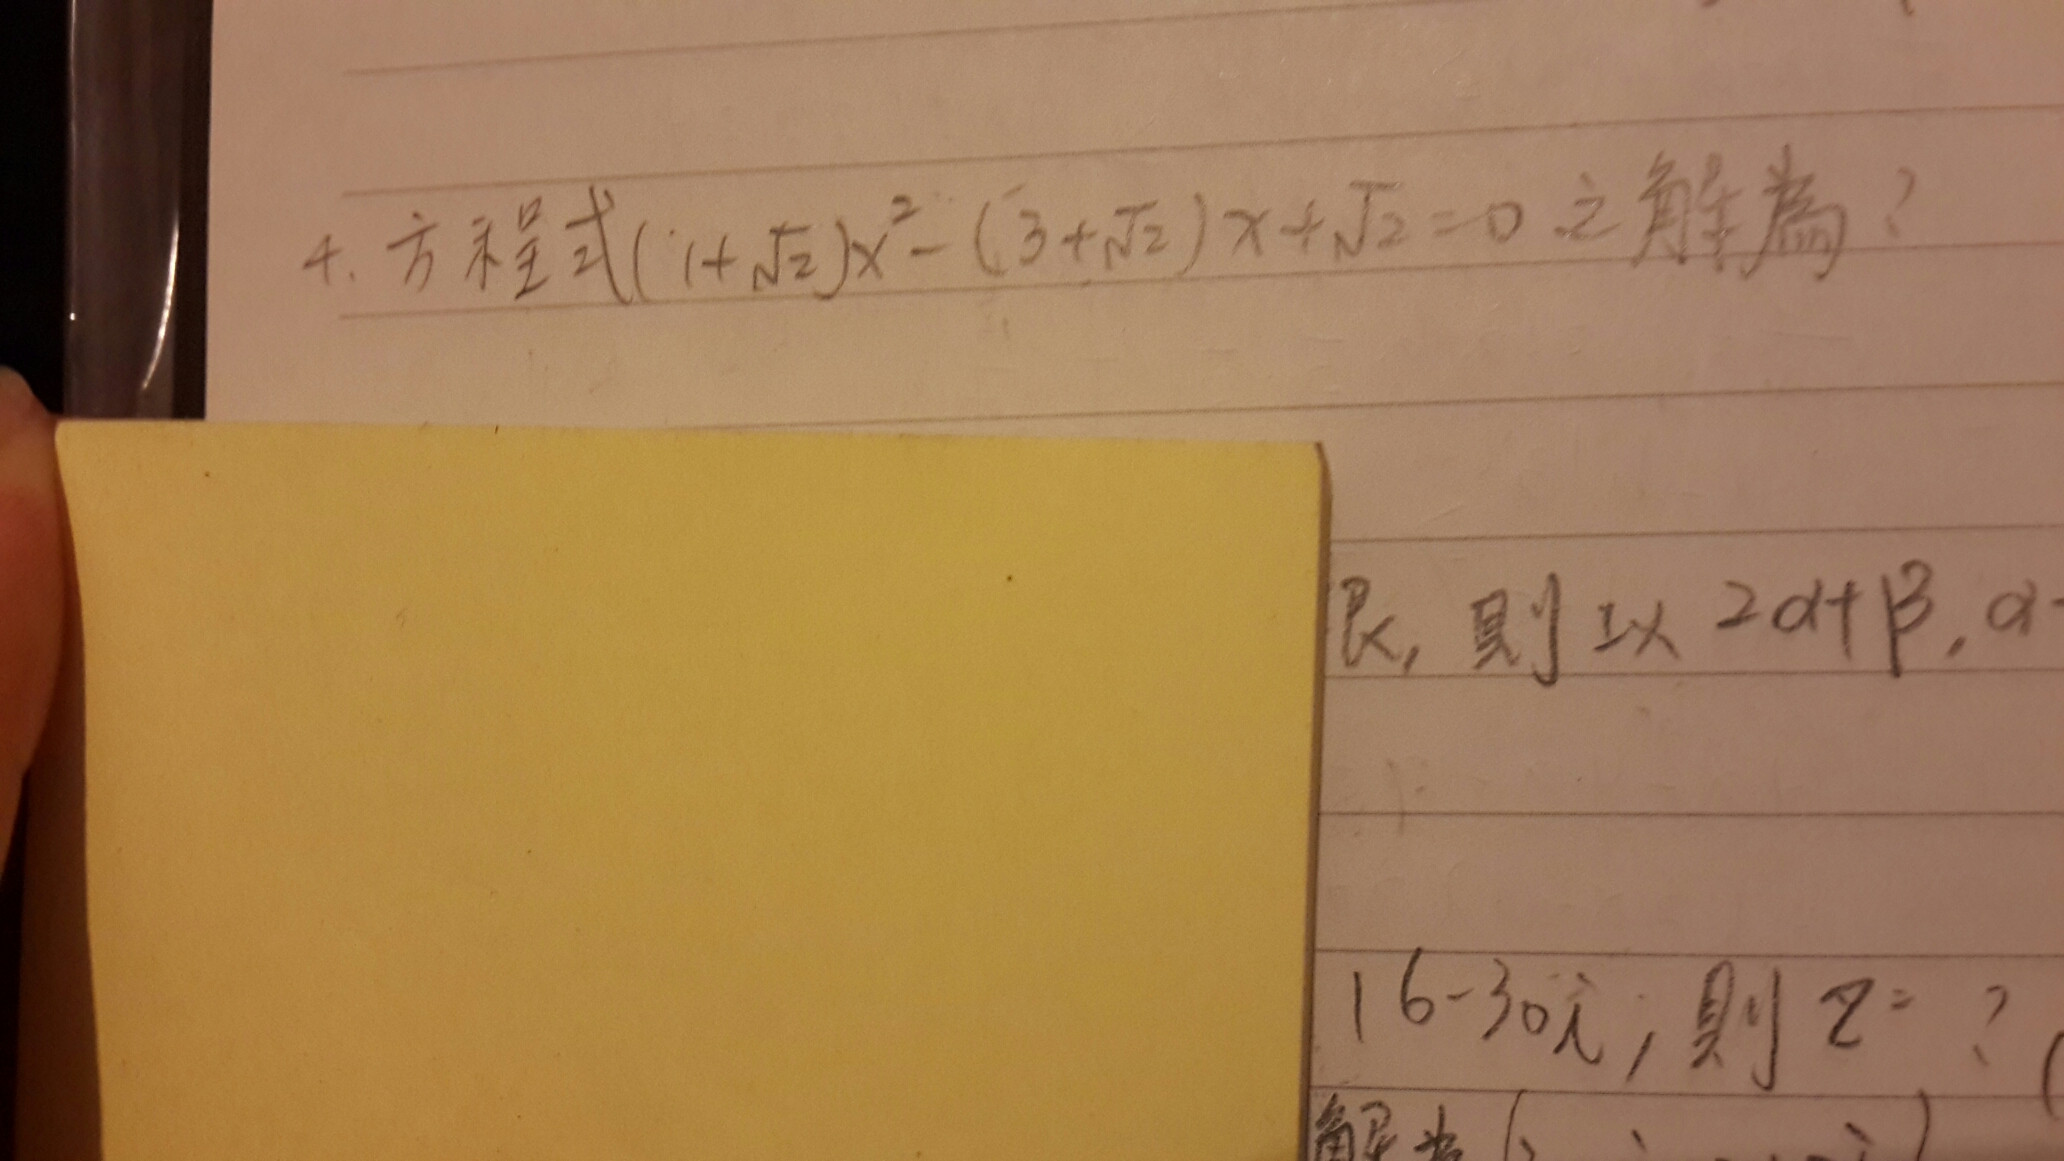 4. 方程式(1+√2)x²-(3+√2)x+√2=0之解為?
根, 則以2α+β, α-
16-30i, 則z=?
解為(